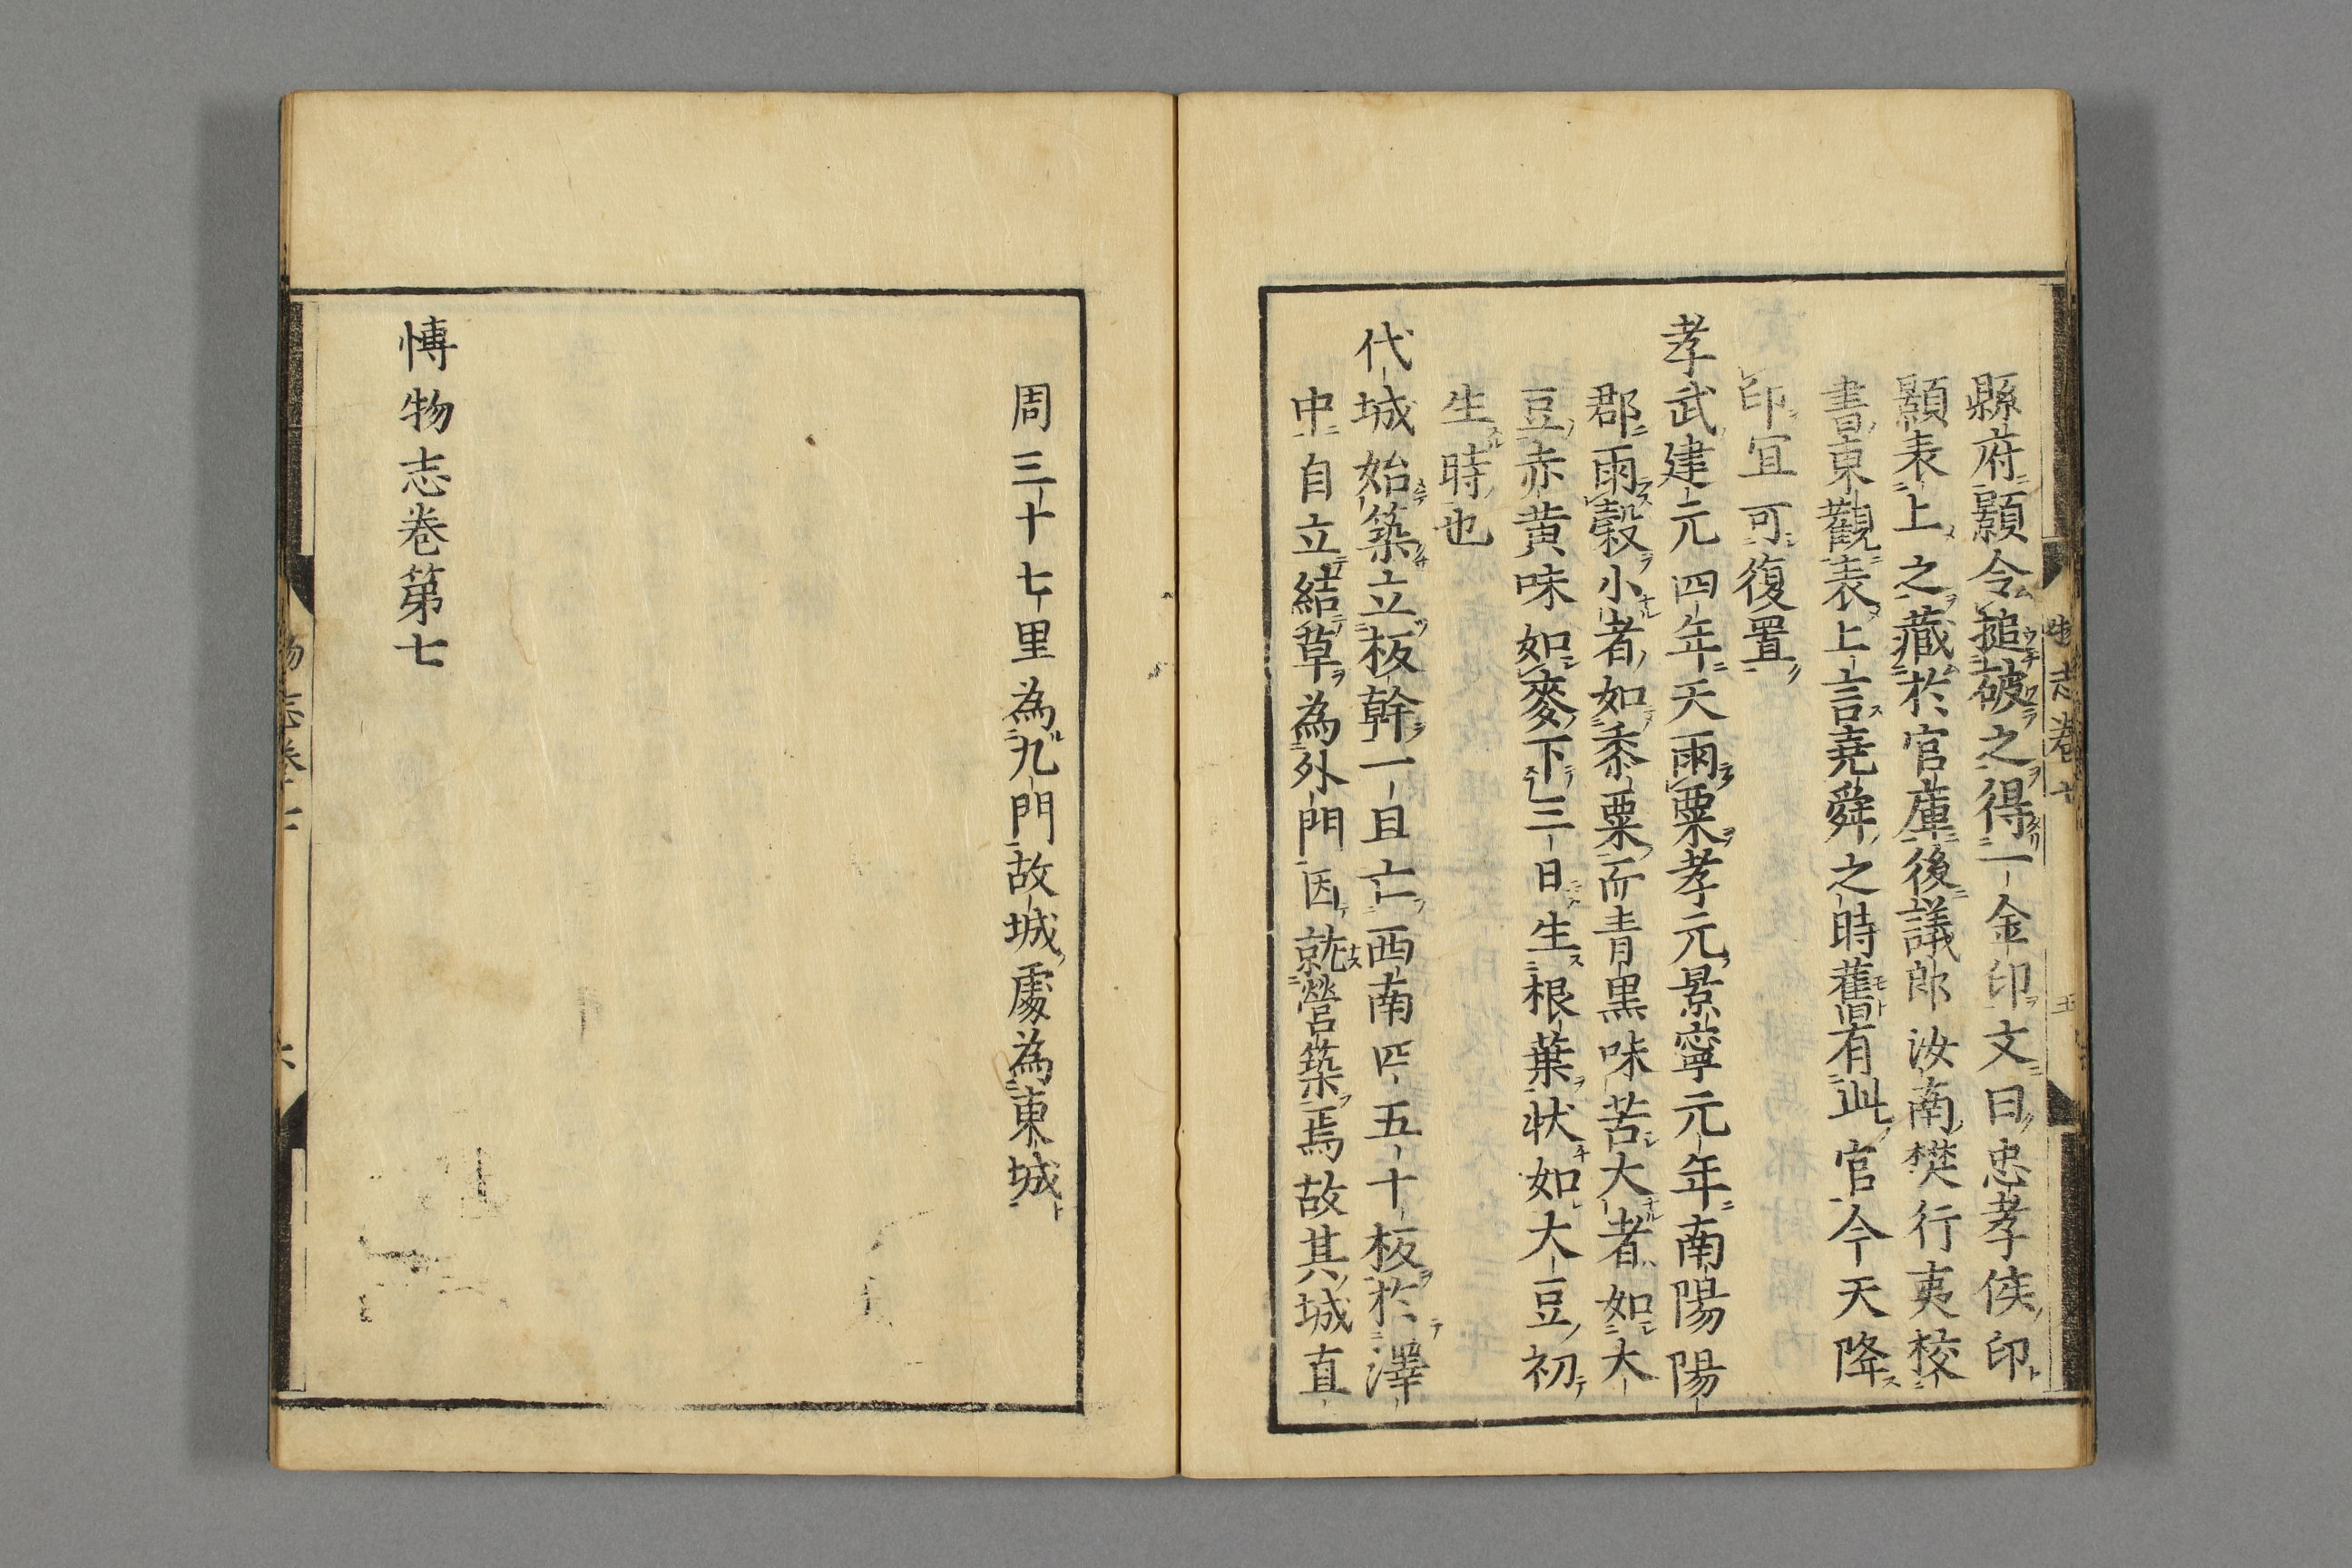 縣府顥令搥破之得一金印文曰忠孝侯印
顥表上之藏於官庫後議郎汝南樊行夷校
書東觀表上言堯舜之時舊有此官今天降
印冝可復置
孝武建元四年天雨粟孝元景寧元年南陽陽
郡雨穀小者如黍粟而青黒味苦大者如大
豆赤黄味如麥下三日生根葉状如大豆初
生時也
代城始築立板幹一旦亡西南四五十板於澤
中自立結草為外門因就營築焉故其城直
周三十七里為九門故城處為東城
博物志卷第七